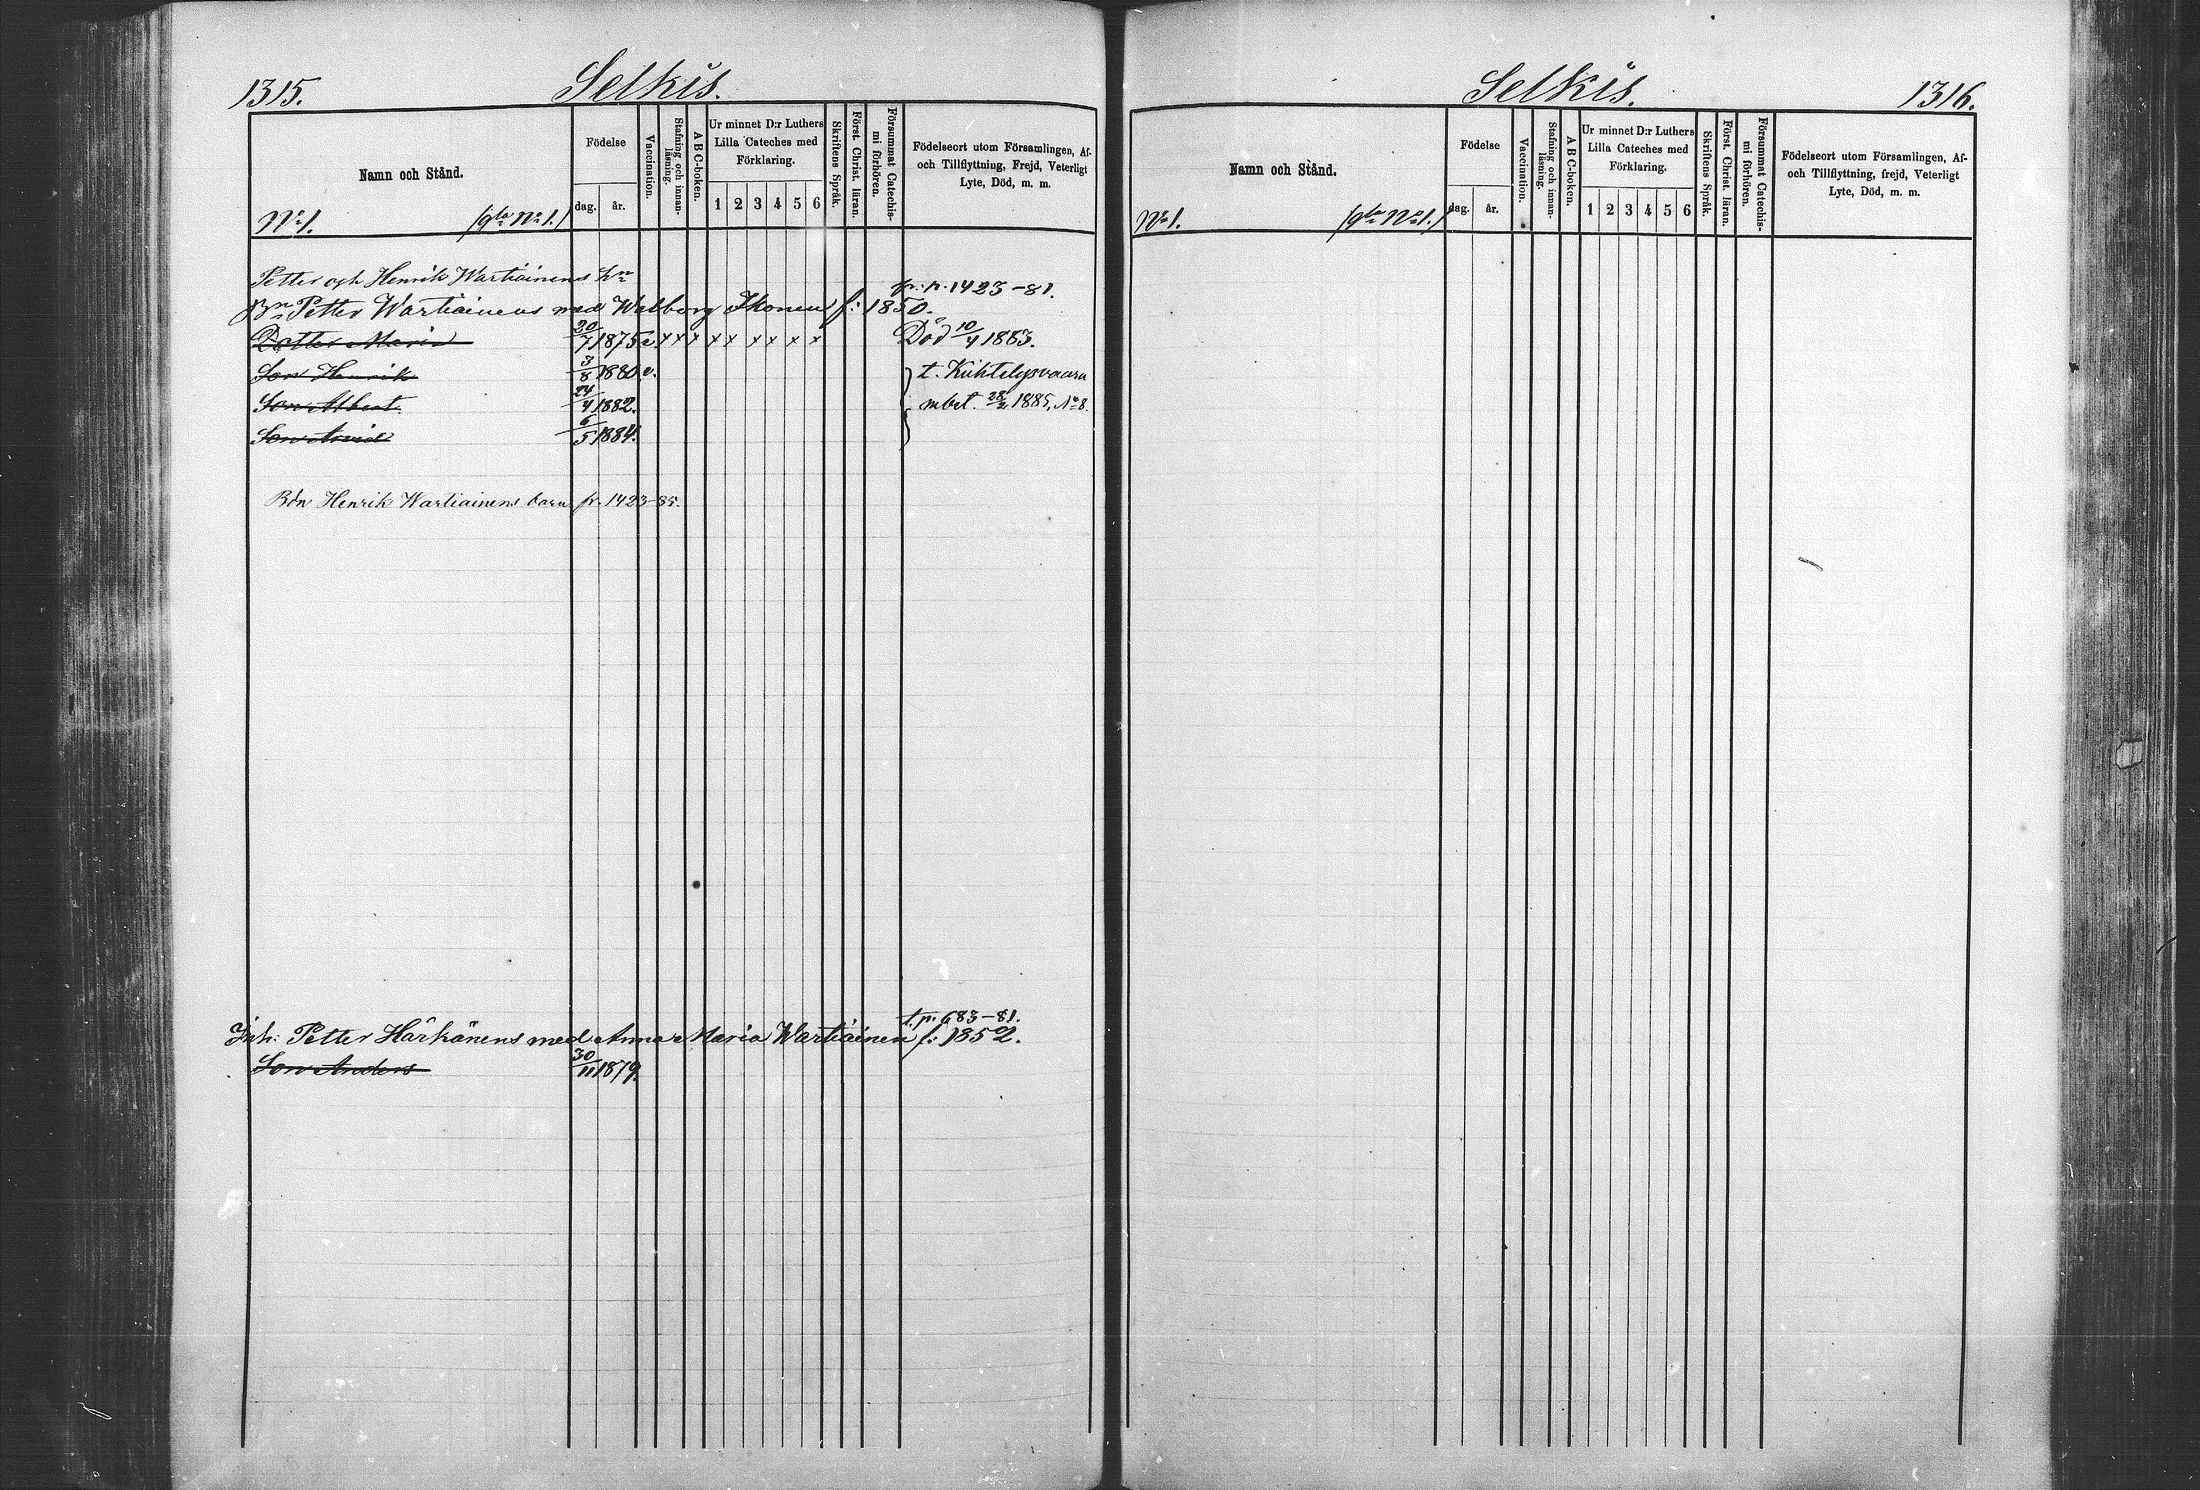 1315.
Selkis.
Namn och Stånd.
Födelse
dag.
år.
Vaccination.
Stafning och innan-
läsning.
A B C-boken.
Ur minnet D:r Luthers
Lilla Cateches med
Förklaring.
1 2 3 4 5 6
Skriftens Språk.
Först. Christ. läran.
Försummat Catechis-
mi förhören.
Födelseort utom Församlingen, Af-
och Tillflyttning, Frejd, Veterligt
Lyte, Död, m. m.
No 1. (gla No 1.)
Petter och Henrik Wartiainens
fr. p. 1423-81.
Bn Petter Wartiainens med Walborg Ikonen f: 1850.
Dotter Maria 20/7 1875 v. x x x x x x x x x Död 10/4 1883.
Son Henrik 3/8 1880 v. t. Kiihtelysvaara
Son Albert 24/4 1882. mbet. 28/2 1885, No 8.
Son Arvid 6/5 1884.
Bdn Henrik Wartiainens barn p. 1423-85.
t. p. 683-81.
Inh: Petter Härkönens med Anna Maria Wartiainen f: 1852.
Son Anders 30/11 1879.
Selkis.
1316.
Namn och Stånd.
Födelse
dag.
år.
Vaccination.
Stafning och innan-
läsning.
A B C-boken.
Ur minnet D:r Luthers
Lilla Cateches med
Förklaring.
1 2 3 4 5 6
Skriftens Språk.
Först. Christ. läran.
Försummat Catechis-
mi förhören.
Födelseort utom Församlingen, Af-
och Tillflyttning, frejd, Veterligt
Lyte, Död, m. m.
No 1. (gla No 1.)